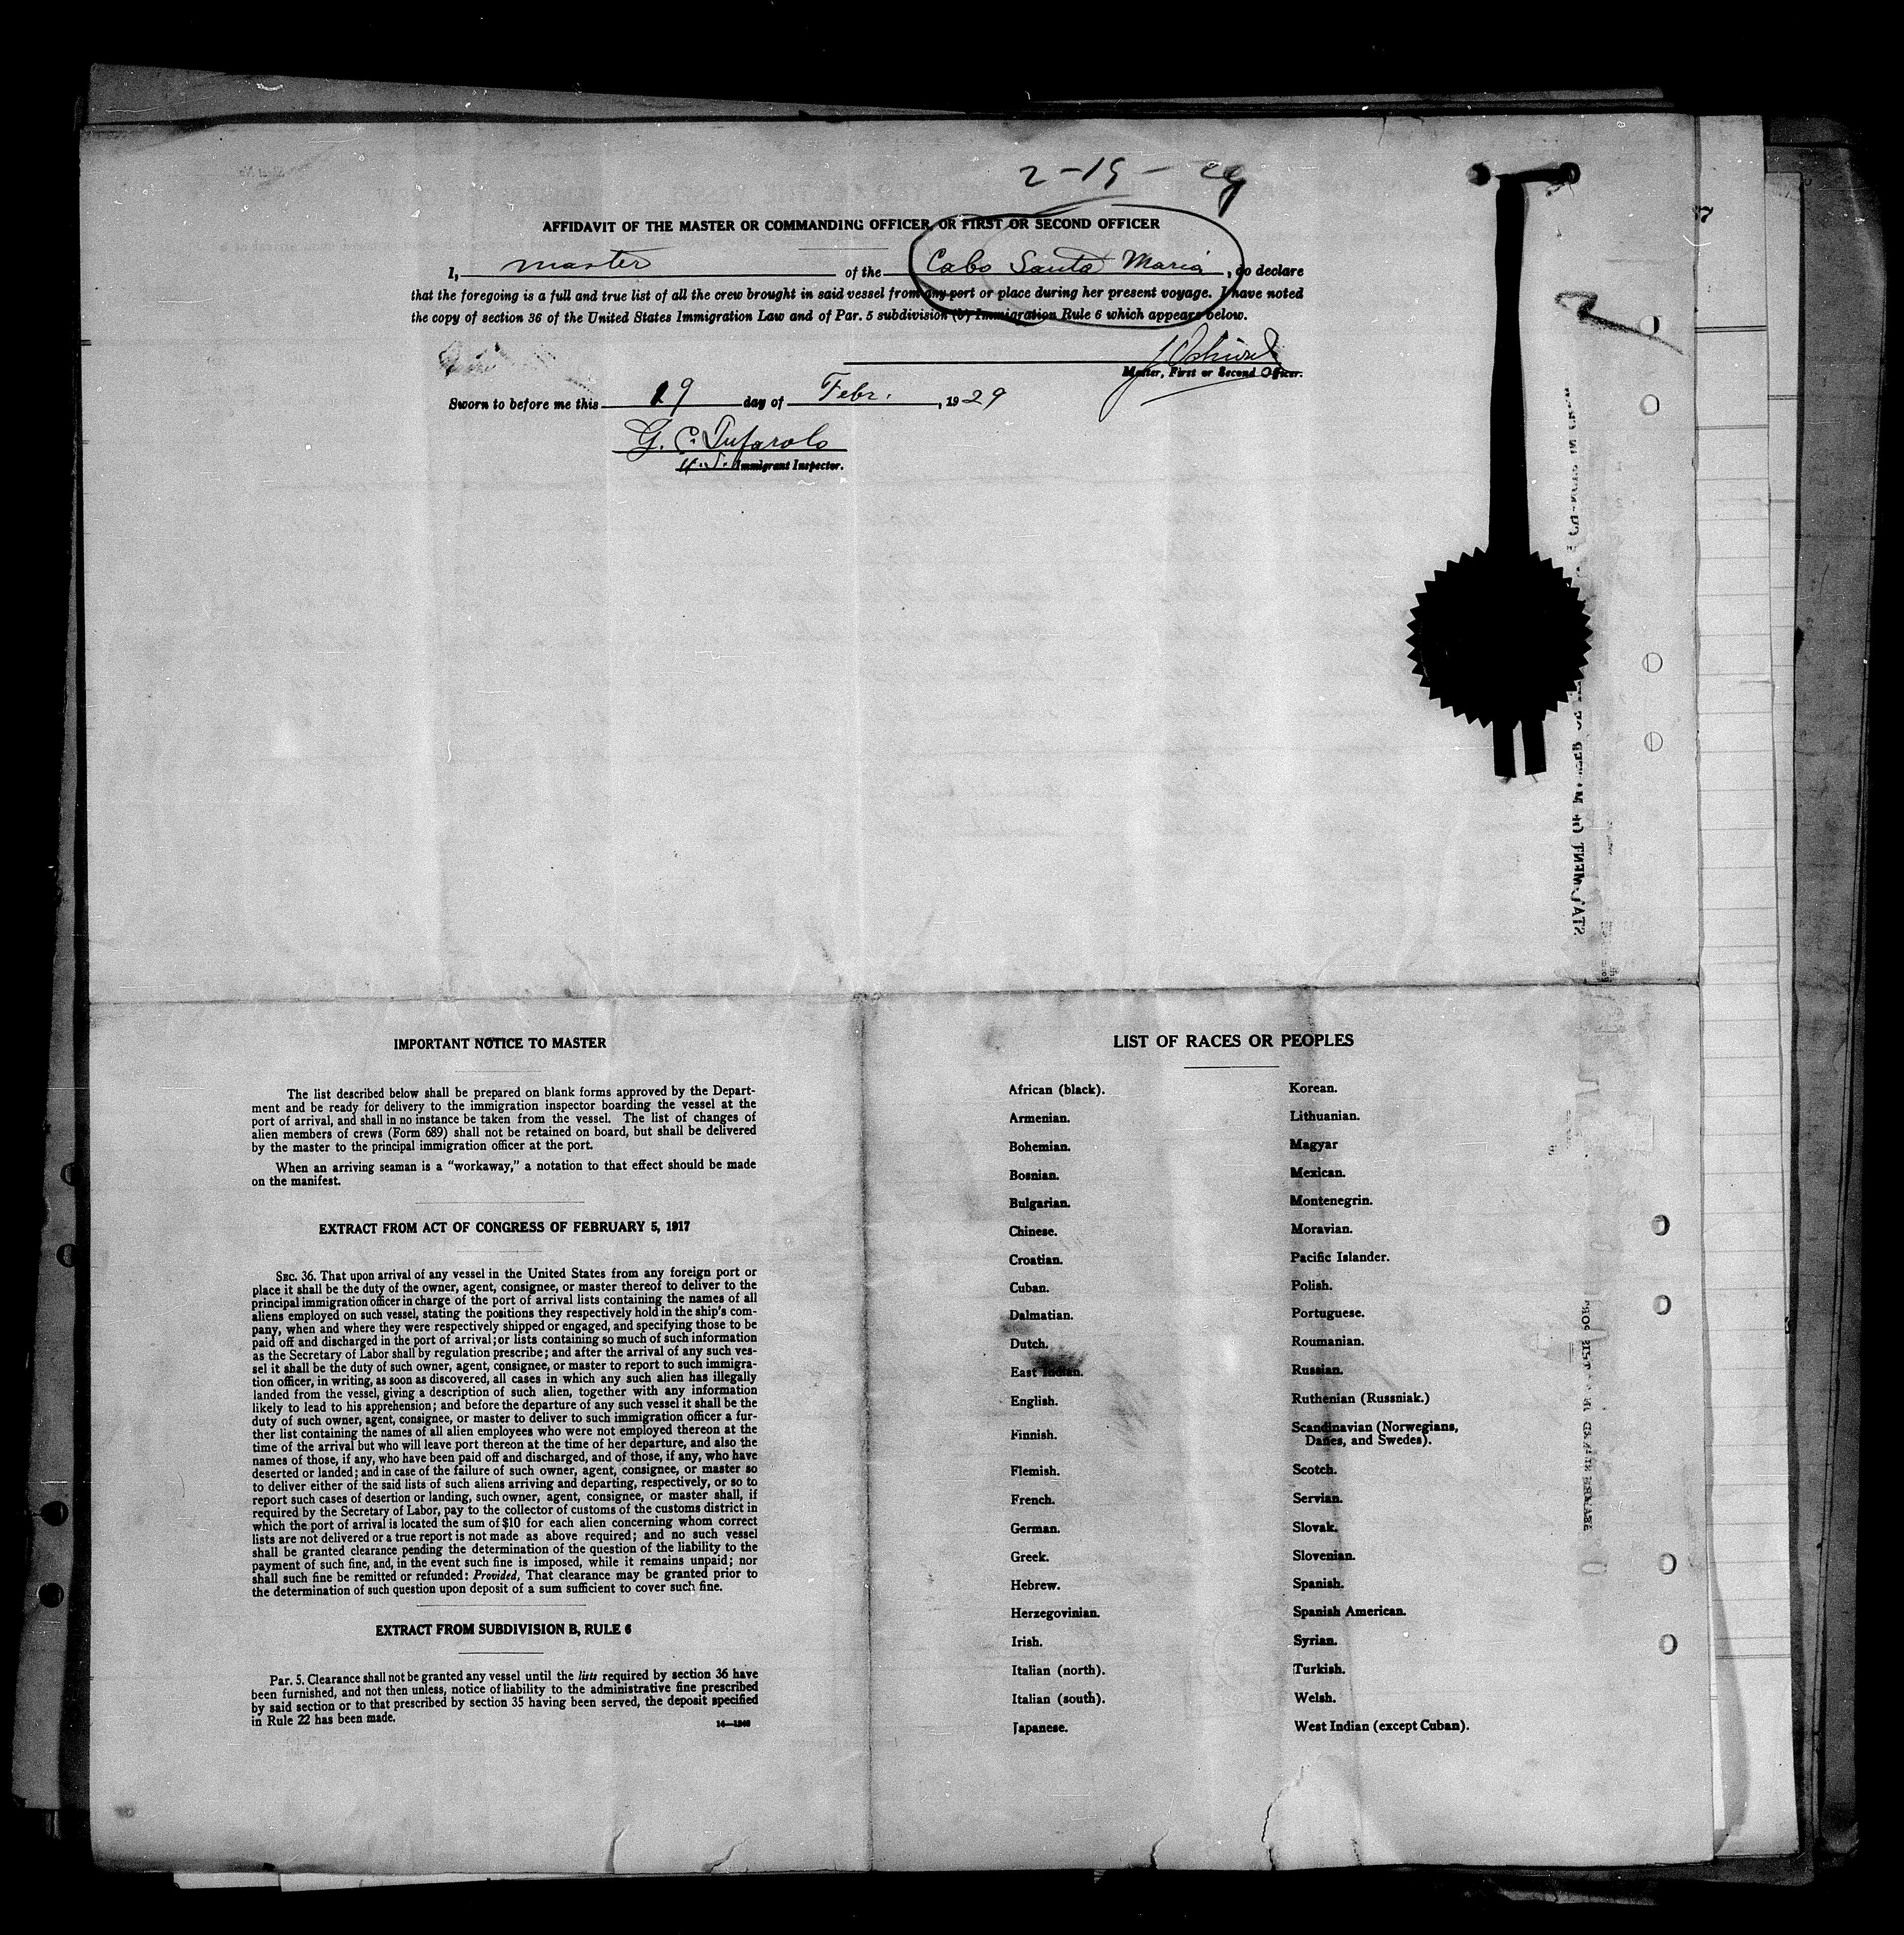 2-19-29
AFFIDAVIT OF THE MASTER OR COMMANDING OFFICER, OR FIRST OR SECOND OFFICER
I, master of the Cabo Santa Maria, do declare
that the foregoing is a full and true list of all the crew brought in said vessel from any port or place during her present voyage. I have noted
the copy of section 36 of the United States Immigration Law and of Par. 5 subdivision (b) Immigration Rule 6 which appears below.
Master, First or Second Officer.
Sworn to before me this 19 day of Febr., 1929
G. C. Tufarolo
U.S. Immigrant Inspector.
IMPORTANT NOTICE TO MASTER
The list described below shall be prepared on blank forms approved by the Depart-
ment and be ready for delivery to the immigration inspector boarding the vessel at the
port of arrival, and shall in no instance be taken from the vessel. The list of changes of
alien members of crews (Form 689) shall not be retained on board, but shall be delivered
by the master to the principal immigration officer at the port.
When an arriving seaman is a "workaway," a notation to that effect should be made
on the manifest.
EXTRACT FROM ACT OF CONGRESS OF FEBRUARY 5, 1917
SEC. 36. That upon arrival of any vessel in the United States from any foreign port or
place it shall be the duty of the owner, agent, consignee, or master thereof to deliver to the
principal immigration officer in charge of the port of arrival lists containing the names of all
aliens employed on such vessel, stating the positions they respectively hold in the ship's com-
pany, when and where they were respectively shipped or engaged, and specifying those to be
paid off and discharged in the port of arrival; or lists containing so much of such information
as the Secretary of Labor shall by regulation prescribe; and after the arrival of any such ves-
sel it shall be the duty of such owner, agent, consignee, or master to report to such immigra-
tion officer, in writing, as soon as discovered, all cases in which any such alien has illegally
landed from the vessel, giving a description of such alien, together with any information
likely to lead to his apprehension; and before the departure of any such vessel it shall be the
duty of such owner, agent, consignee, or master to deliver to such immigration officer a fur-
ther list containing the names of all alien employees who were not employed thereon at the
time of the arrival but who will leave port thereon at the time of her departure, and also the
names of those, if any, who have been paid off and discharged, and of those, if any, who have
deserted or landed; and in case of the failure of such owner, agent, consignee, or master so
to deliver either of the said lists of such aliens arriving and departing, respectively, or so to
report such cases of desertion or landing, such owner, agent, consignee, or master shall, if
required by the Secretary of Labor, pay to the collector of customs of the customs district in
which the port of arrival is located the sum of $10 for each alien concerning whom correct
lists are not delivered or a true report is not made as above required; and no such vessel
shall be granted clearance pending the determination of the question of the liability to the
payment of such fine, and, in the event such fine is imposed, while it remains unpaid; nor
shall such fine be remitted or refunded: Provided, That clearance may be granted prior to
the determination of such question upon deposit of a sum sufficient to cover such fine.
EXTRACT FROM SUBDIVISION B, RULE 6
Par. 5. Clearance shall not be granted any vessel until the lists required by section 36 have
been furnished, and not then unless, notice of liability to the administrative fine prescribed
by said section or to that prescribed by section 35 having been served, the deposit specified
in Rule 22 has been made.
LIST OF RACES OR PEOPLES
African (black).
Armenian.
Bohemian.
Bosnian.
Bulgarian.
Chinese.
Croatian.
Cuban.
Dalmatian.
Dutch.
East Indian.
English.
Finnish.
Flemish.
French.
German.
Greek.
Hebrew.
Herzegovinian.
Irish.
Italian (north).
Italian (south).
Japanese.
Korean.
Lithuanian.
Magyar
Mexican.
Montenegrin.
Moravian.
Pacific Islander.
Polish.
Portuguese.
Roumanian.
Russian.
Ruthenian (Russniak.)
Scandinavian (Norwegians,
Danes, and Swedes).
Scotch.
Servian.
Slovak.
Slovenian.
Spanish.
Spanish American.
Syrian.
Turkish.
Welsh.
West Indian (except Cuban).